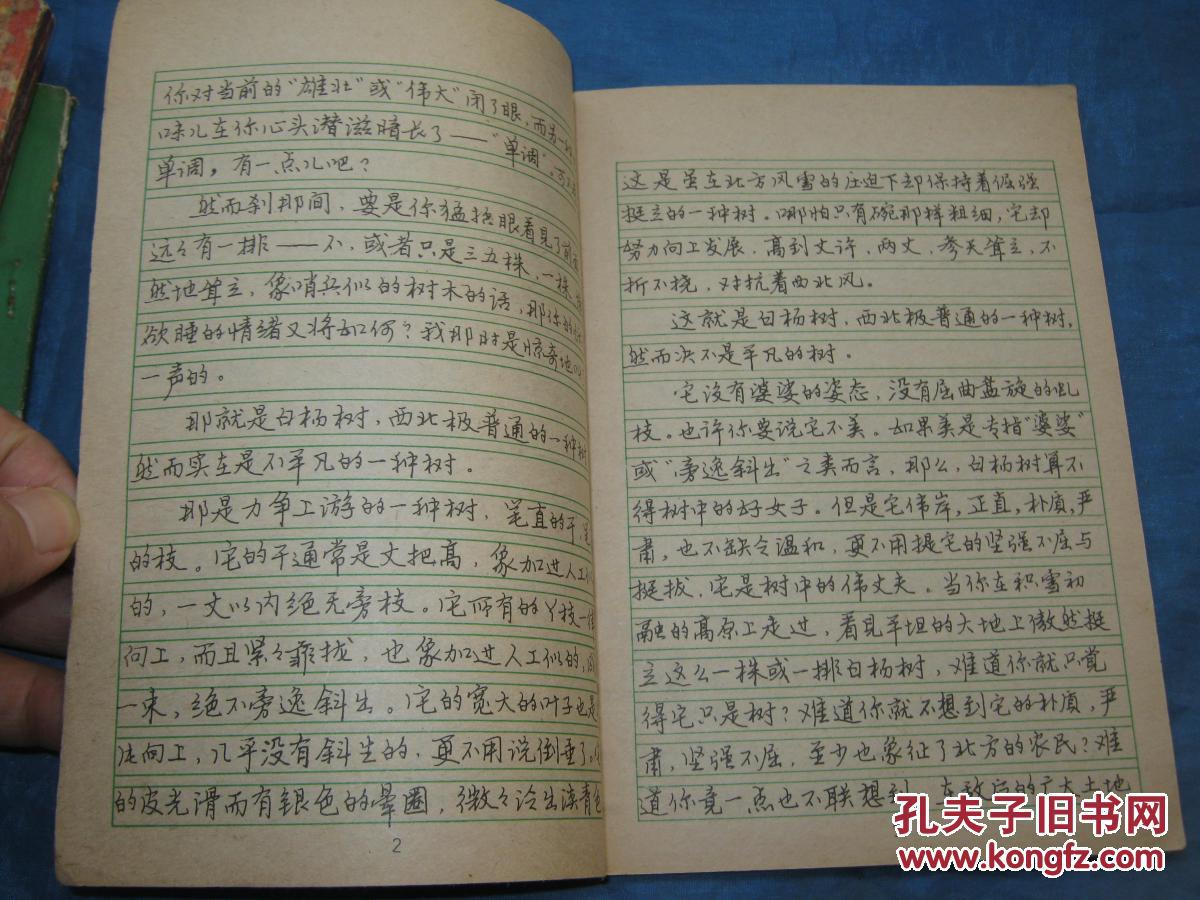 你对当前的"雄壮"或"伟大"闭了眼,而另一种
味儿在你心头潜滋暗长了——"单调"。可不是
单调,有一点儿吧?
然而刹那间,要是你猛抬眼看见了前面
远々有一排——不,或者只是三五株,一株,
然地耸立,像哨兵似的树木的话,那你的
欲睡的情绪又将如何?我那时是惊奇地叫
一声的。
那就是白杨树,西北极普通的一种树
然而实在是不平凡的一种树。
那是力争上游的一种树,笔直的干,笔
的枝。它的干通常是丈把高,象加过人工似
的,一丈以内绝无旁枝。它所有的丫枝一律
向上,而且紧々靠拢,也象加过人工似的,成
一束,绝不旁逸斜出。它的宽大的叶子也是
片向上,几乎没有斜生的,更不用说倒垂了。它
的皮光滑而有银色的晕圈,微々泛出淡青色
2
这是虽在北方风雪的压迫下却保持着倔强
挺立的一种树。哪怕只有碗那样粗细,它却
努力向上发展,高到丈许,两丈,参天耸立,不
折不挠,对抗着西北风。
这就是白杨树,西北极普通的一种树,
然而决不是平凡的树。
它没有婆娑的姿态,没有屈曲盘旋的虬
枝。也许你要说它不美。如果美是专指"婆娑"
或"旁逸斜出"之类而言,那么,白杨树算不
得树中的好女子。但是它伟岸,正直,朴质,严
肃,也不缺乏温和,更不用提它的坚强不屈与
挺拔,它是树中的伟丈夫。当你在积雪初
融的高原上走过,看见平坦的大地上傲然挺
立这么一株或一排白杨树,难道你就只觉
得它只是树?难道你就不想到它的朴质,严
肃,坚强不屈,至少也象征了北方的农民?难
道你竟一点也不联想到,在敌后的广大土地
孔夫子旧书网
www.kongfz.com